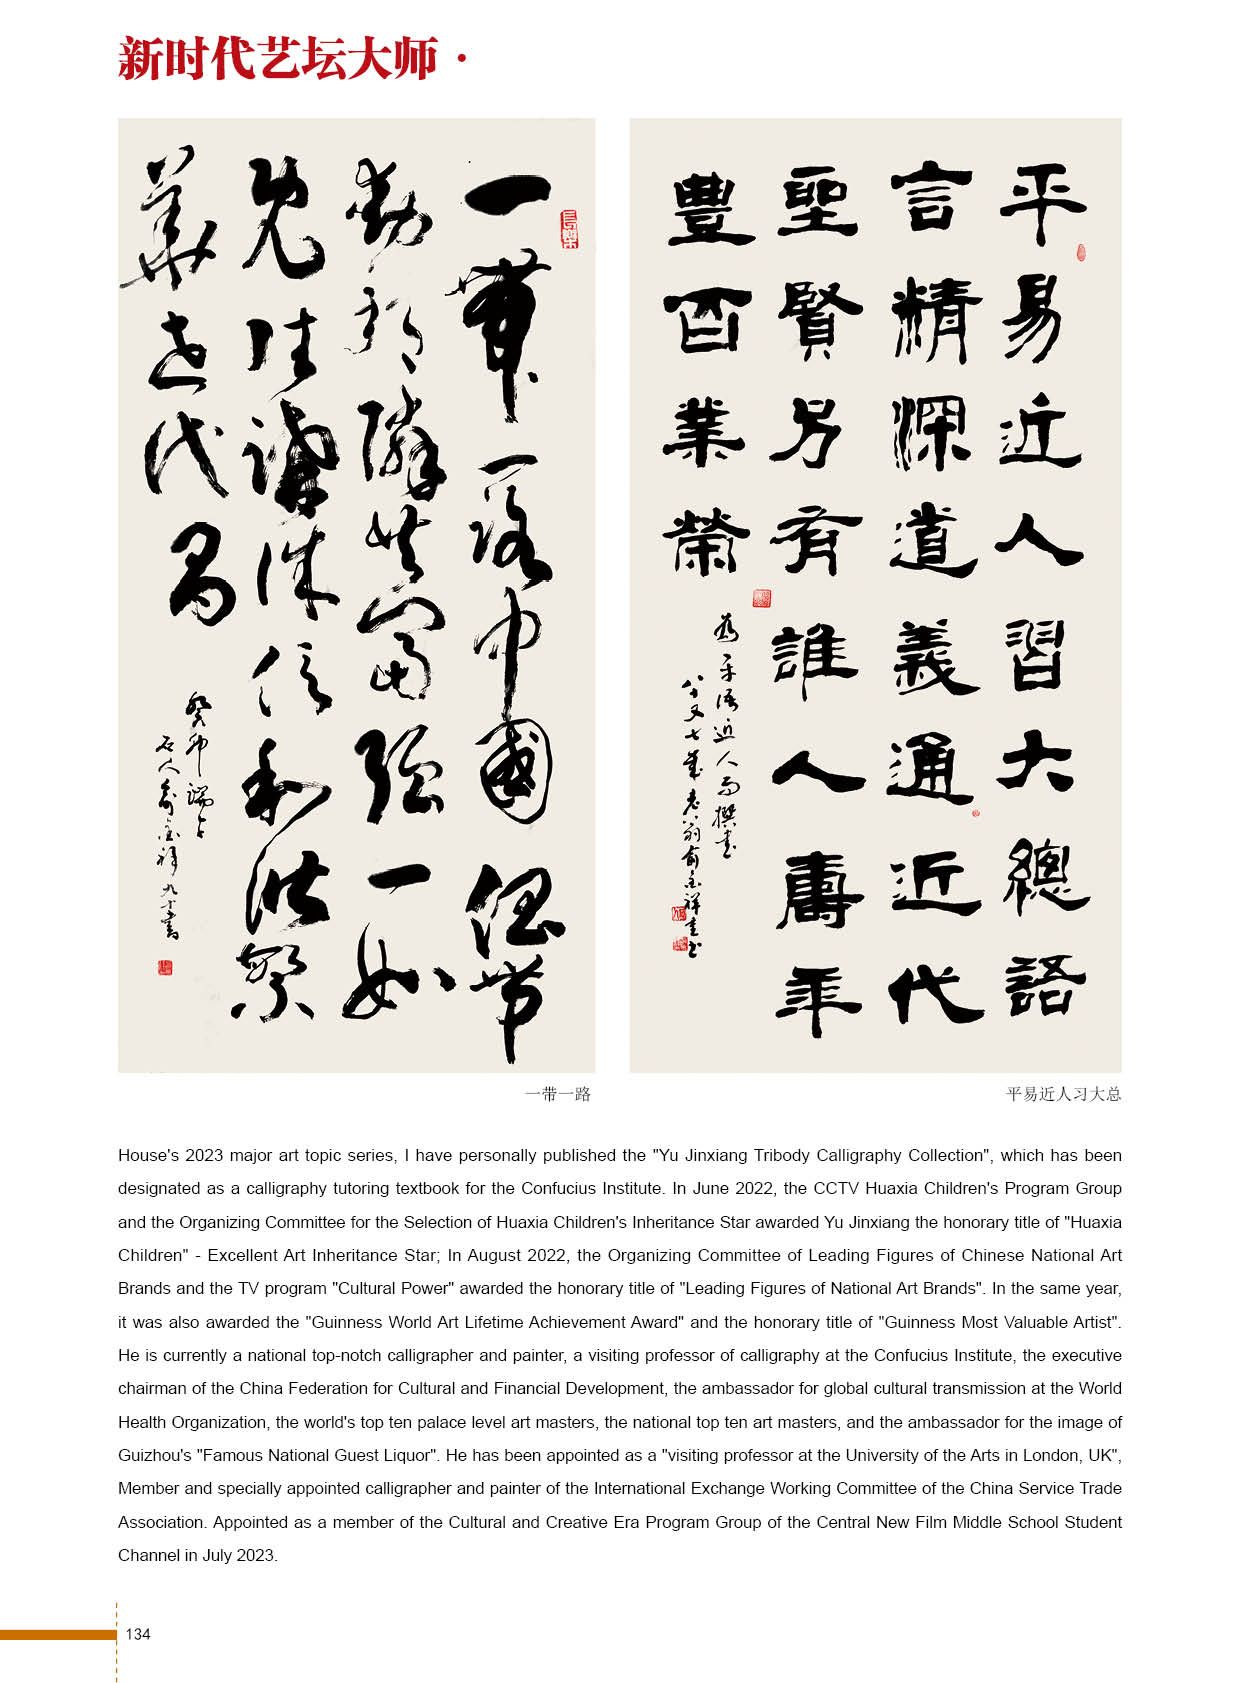 新时代艺坛大师·
平易近人習大總語
言精深道義通近代
聖賢另有誰人壽年
豐百業榮
为平语近人而撰书
八十又七岁老翁俞金祥书
一带一路中國
勤
隣共富強一如
先
信和洪繁
華世代昌
癸卯端午
石人俞金祥九十書
一带一路
平易近人习大总
House's 2023 major art topic series, I have personally published the "Yu Jinxiang Tribody Calligraphy Collection", which has been
designated as a calligraphy tutoring textbook for the Confucius Institute. In June 2022, the CCTV Huaxia Children's Program Group
and the Organizing Committee for the Selection of Huaxia Children's Inheritance Star awarded Yu Jinxiang the honorary title of "Huaxia
Children" - Excellent Art Inheritance Star; In August 2022, the Organizing Committee of Leading Figures of Chinese National Art
Brands and the TV program "Cultural Power" awarded the honorary title of "Leading Figures of National Art Brands". In the same year,
it was also awarded the "Guinness World Art Lifetime Achievement Award" and the honorary title of "Guinness Most Valuable Artist".
He is currently a national top-notch calligrapher and painter, a visiting professor of calligraphy at the Confucius Institute, the executive
chairman of the China Federation for Cultural and Financial Development, the ambassador for global cultural transmission at the World
Health Organization, the world's top ten palace level art masters, the national top ten art masters, and the ambassador for the image of
Guizhou's "Famous National Guest Liquor". He has been appointed as a "visiting professor at the University of the Arts in London, UK",
Member and specially appointed calligrapher and painter of the International Exchange Working Committee of the China Service Trade
Association. Appointed as a member of the Cultural and Creative Era Program Group of the Central New Film Middle School Student
Channel in July 2023.
134